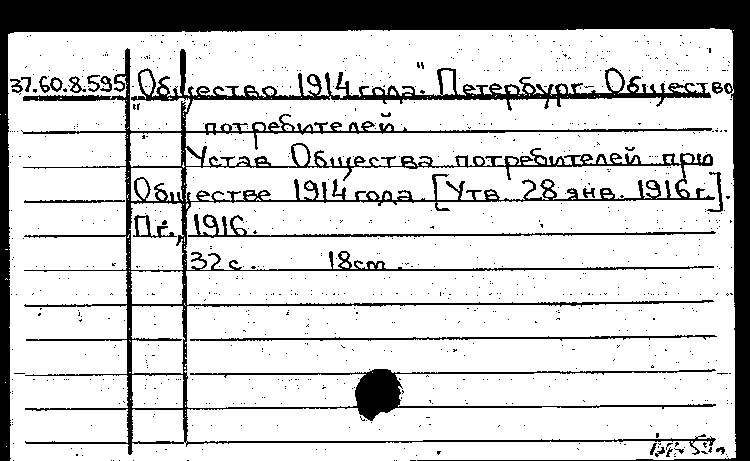 37.60.8.595 "Общество 1914 года". Петербург. Общество
потребителей.
Устав Общества потребителей при
Обществе 1914 года. [Утв. 28 янв. 1916 г.].
Пг., 1916.
32 с. 18 cm.